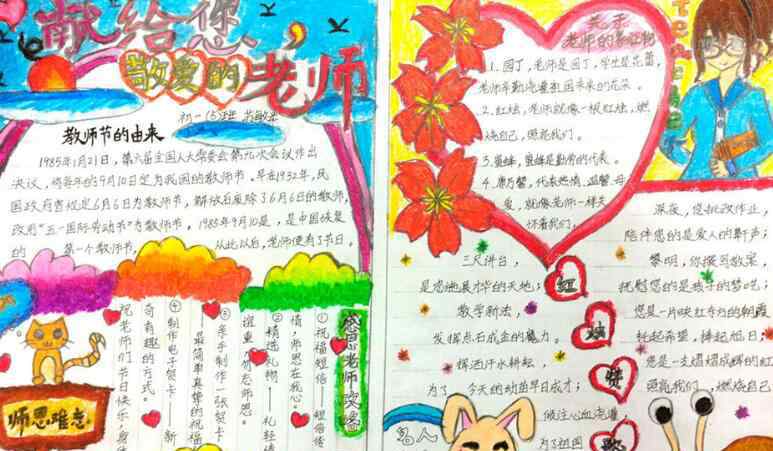 献给您、
敬爱的老师
初一(5)班
教师节的由来
1985年1月21日,第六届全国人大常委会第九次会议作出
决议,将每年的9月10日定为我国的教师节。早在1932年,民
国政府曾规定6月6日为教师节,解放后废除了6月6日的教师节,
改用"五一国际劳动节"为教师节。1985年9月10是,是中国恢复
的 第一个教师节, 从此以后,老师便有了节日。
感恩老师
①祝福短信——短信传
情,师恩在我心。
②精选礼物——礼轻情
谊重,勿忘师恩。
③亲手制作一张贺卡
——最简单真挚的祝福
④制作电子贺卡——新
奇有趣的方式。
祝老师们节日快乐,
师恩难忘
关于
老师的象征物
1.园丁,老师是园丁,学生是花蕾,
老师辛勤浇灌祖国未来的花朵。
2.红烛,老师就像一根红烛,燃
烧自己,照亮我们。
3.蜜蜂,蜜蜂是勤劳的代表。
4.康乃馨,代表热情、温馨、母
爱,就像老师一样关
怀着我们。
Teacher
三尺讲台,
是您施展才华的天地;
教学新法,
发挥点石成金的魔力。
挥洒汗水耕耘,
为了 今天的幼苗早日成才;
倾注心血
为了祖国
红
烛
赞
歌
深夜,您批改作业,
陪伴您的是爱人的鼾声;
黎明,你撰写教案,
抚慰您的是孩子的梦呓;
您是一片映红夸父的朝霞
托起希望,捧起旭日;
您是一支熠熠成辉的红
照亮我们,燃烧自己
名人